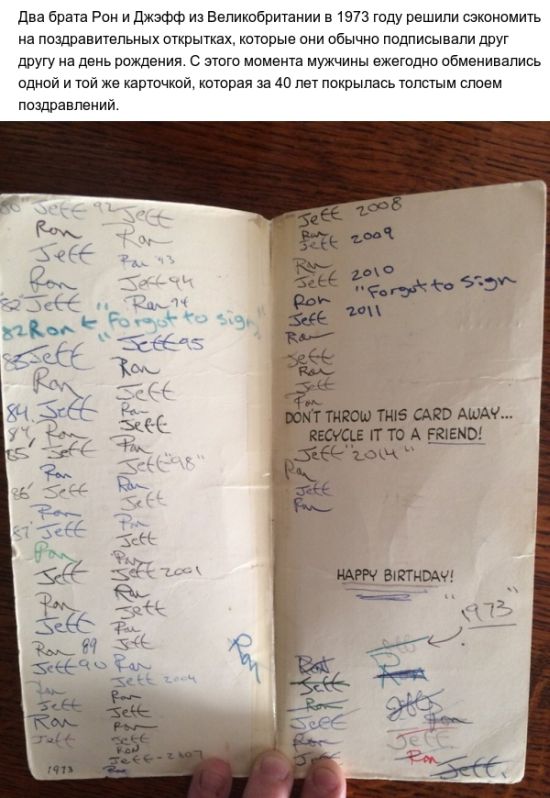 Два брата Рон и Джэфф из Великобритании в 1973 году решили сэкономить
на поздравительных открытках, которые они обычно подписывали друг
другу на день рождения. С этого момента мужчины ежегодно обменивались
одной и той же карточкой, которая за 40 лет покрылась толстым слоем
поздравлений.
80 Jeff
Ron
Jeff
Ron
"82" Jeff
82 Ron "Forgot to sign"
83 Jeff
Ron
84 Jeff
84' Ron
85' Jeff
Ron
86' Jeff
Ron
87' Jeff
Ron
Jeff
Ron
Jeff
Ron 89
Jeff 90
Ron
Jeff
Ron
Jeff
1973
92 Jeff
Ron
Ron 93
Jeff 94
Ron 94
Jeff 95
Ron
Jeff
Ron
Jeff
Ron
Jeff "98"
Ron
Jeff
Ron
Jeff
Ron
Jeff 2001
Ron
Jeff
Ron
Jeff
Ron
Jeff 2004
Ron
Jeff
Ron
Jeff
Ron
Jeff - 2007
Ron
Ron
Jeff 2008
Ron
Jeff 2009
Ron
Jeff 2010
Ron "Forgot to Sign
Jeff 2011
Ron
Jeff
Ron
Jeff
Ron
DON'T THROW THIS CARD AWAY...
RECYCLE IT TO A FRIEND!
Jeff "2014"
Ron
Jeff
Ron
HAPPY BIRTHDAY!
"1973"
Ron
Jeff
Ron
Jeff
Ron
Jeff
Jeff
Ron
Jeff
Ron
Jeff
Ron
Jeff